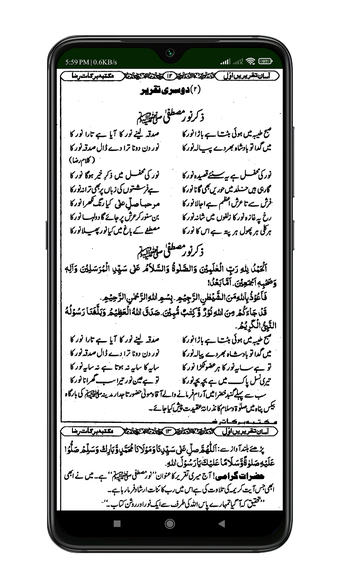 5:59 PM | 0.6KB/s
مکتبہ برکات رضا ۱۲ آسان تقریریں اوّل
(۲) دوسری تقریر
ذکر نور مصطفیٰ ﷺ
صبح طیبہ میں ہوئی بٹتا ہے باڑا نور کا صدقہ لینے نور کا آیا ہے تارا نور کا
میں گدا تو بادشاہ بھر دے پیالہ نور کا نور دن دونا ترا دے ڈال صدقہ نور کا
(کلام رضا)
نور کی محفل ہے سنئے قصیدہ نور کا نور کی محفل میں ذکر خیر ہوگا نور کا
گا رہی ہیں حوریں بھی گانا نور کا ہے فرشتوں کی زباں پر بھی ترانہ نور کا
فرش سے تا عرش اعظم ہے اجالا نور کا مرحبا صل علیٰ کیا رنگ نکھرا نور کا
رخ پہ غازہ نور کا زلفوں میں شانہ نور کا بن سنور کر عرش پر جائے گا دولہا نور کا
ہر کلی ہر پھول ہر پتہ ہے اس کا نور کا مصطفےٰ کے باغ میں کیا نور پھیلا نور کا
ذکر نور مصطفیٰ ﷺ
اَلْحَمْدُ لِلّٰهِ رَبِّ الْعٰلَمِيْنَ وَالصَّلٰوةُ وَالسَّلَامُ عَلٰى سَيِّدِ الْمُرْسَلِيْنَ وَآلِهٖ
وَصَحْبِهٖ اَجْمَعِيْنَ. اَمَّا بَعْدُ!
فَاَعُوْذُ بِاللّٰهِ مِنَ الشَّيْطٰنِ الرَّجِيْمِ. بِسْمِ اللّٰهِ الرَّحْمٰنِ الرَّحِيْمِ.
قَدْ جَآءَكُمْ مِنَ اللّٰهِ نُوْرٌ وَّكِتٰبٌ مُّبِيْنٌ. صَدَقَ اللّٰهُ الْعَظِيْمُ وَبَلَّغَنَا رَسُوْلُهُ
النَّبِيُّ الْكَرِيْمُ.
صبح طیبہ میں ہوئی بٹتا ہے باڑا نور کا صدقہ لینے نور کا آیا ہے تارا نور کا
میں گدا تو بادشاہ بھر دے پیالہ نور کا نور دن دونا ترا دے ڈال صدقہ نور کا
تو ہے سایہ نور کا ہر عضو ٹکڑا نور کا سایہ کا سایہ نہ ہوتا ہے نہ سایہ نور کا
تیری نسل پاک میں ہے بچہ بچہ نور کا تو ہے عین نور تیرا سب گھرانا نور کا
سب سے پہلے گنبد خضرا میں آرام فرمانے والے آقا و مولیٰ حضور تاجدار مدینہ ﷺ کی بارگاہ
بیکس پناہ میں صلوٰۃ و سلام کا نذرانہ عقیدت پیش کیا جائے۔
مکتبہ برکات رضا
مکتبہ برکات رضا ۱۳ آسان تقریریں اوّل
پڑھئے بلند آواز سے: اَللّٰهُمَّ صَلِّ عَلٰى سَيِّدِنَا وَمَوْلَانَا مُحَمَّدٍ وَّبَارِكْ وَسَلِّمْ صَلُّوْا
عَلَيْهِ صَلٰوةً وَّسَلَامًا عَلَيْكَ يَا رَسُوْلَ اللّٰهِ.
حضرات گرامی! آج میری تقریر کا عنوان "نور مصطفیٰ ﷺ" ہے۔ میں نے ابھی
ابھی جس آیت کریمہ کی تلاوت کی ہے اس میں رب کائنات ارشاد فرما رہا ہے۔
"تحقیق کہ آ گیا تمہارے پاس اللہ کی طرف سے ایک نور اور روشن کتاب۔"